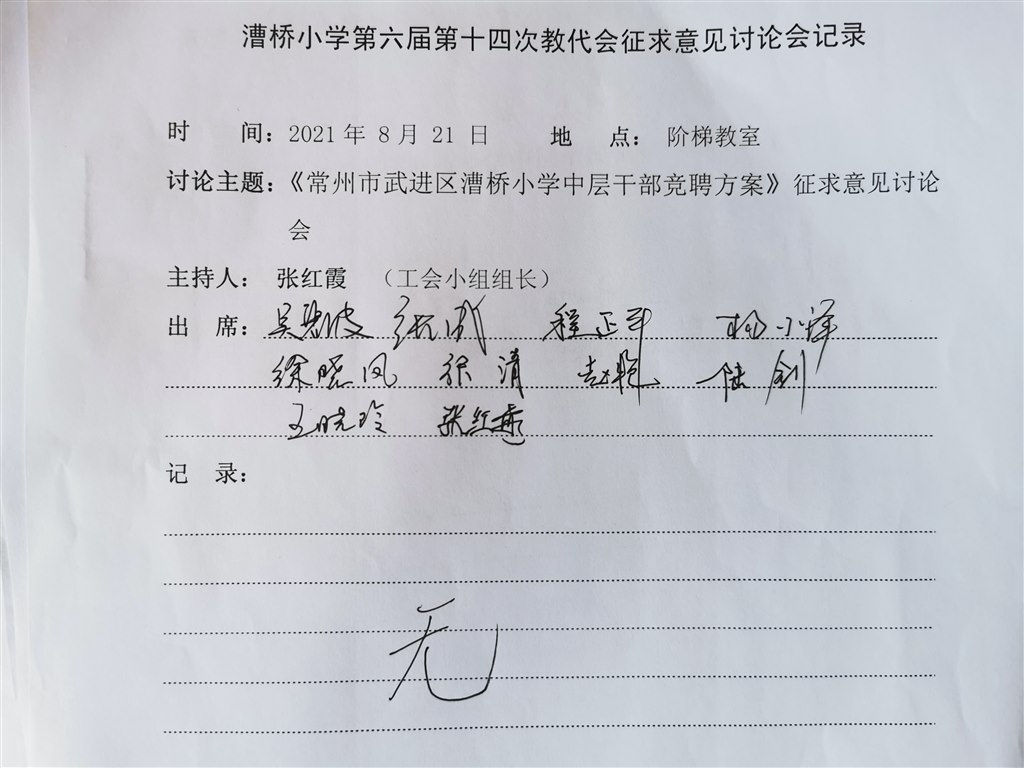 漕桥小学第六届第十四次教代会征求意见讨论会记录
时 间：2021年 8月 21 日 地 点： 阶梯教室
讨论主题：《常州市武进区漕桥小学中层干部竞聘方案》征求意见讨论
会
主持人： 张红霞 （工会小组组长）
出 席：吴 张成 程正平 杨小洋
徐晓凤 张清 赵艳 陆剑
王晓玲 张红霞
记 录：
无